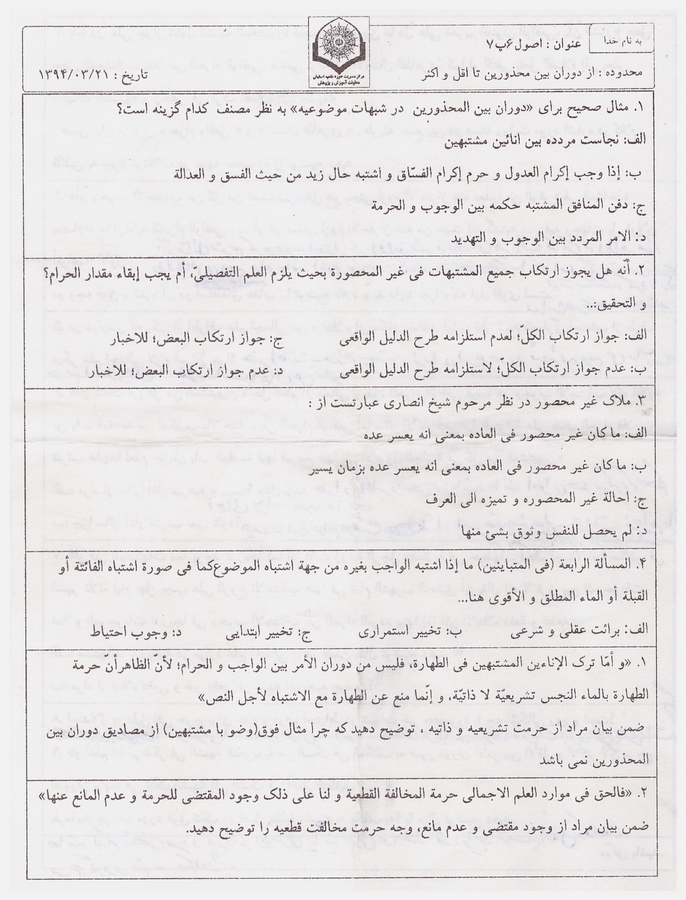 به نام خدا
عنوان : اصول۶پ۷
مرکز مدیریت حوزه علمیه اصفهان
معاونت آموزش و پژوهش
محدوده : از دوران بین محذورین تا اقل و اکثر
تاریخ : ۱۳۹۴/۰۳/۲۱
۱. مثال صحیح برای «دوران بین المحذورین در شبهات موضوعیه» به نظر مصنف کدام گزینه است؟
الف: نجاست مردده بین انائین مشتبهین
ب: إذا وجب إکرام العدول و حرم إکرام الفسّاق و اشتبه حال زید من حیث الفسق و العدالة
ج: دفن المنافق المشتبه حکمه بین الوجوب و الحرمة
د: الامر المردد بین الوجوب و التهدید
۲. أنّه هل یجوز ارتکاب جمیع المشتبهات فی غیر المحصورة بحیث یلزم العلم التفصیلیّ، أم یجب إبقاء مقدار الحرام؟
و التحقیق:..
الف: جواز ارتکاب الکلّ؛ لعدم استلزامه طرح الدلیل الواقعی ج: جواز ارتکاب البعض؛ للاخبار
ب: عدم جواز ارتکاب الکلّ؛ لاستلزامه طرح الدلیل الواقعی د: عدم جواز ارتکاب البعض؛ للاخبار
۳. ملاک غیر محصور در نظر مرحوم شیخ انصاری عبارتست از :
الف: ما کان غیر محصور فی العاده بمعنی انه یعسر عده
ب: ما کان غیر محصور فی العاده بمعنی انه یعسر عده بزمان یسیر
ج: احالة غیر المحصوره و تمیزه الی العرف
د: لم یحصل للنفس وثوق بشئ منها
۴. المسألة الرابعة (فی المتباینین) ما إذا اشتبه الواجب بغیره من جهة اشتباه الموضوع کما فی صورة اشتباه الفائتة أو
القبلة أو الماء المطلق و الأقوی هنا...
الف: برائت عقلی و شرعی ب: تخییر استمراری ج: تخییر ابتدایی د: وجوب احتیاط
۱. «و أمّا ترک الإناءین المشتبهین فی الطهارة، فلیس من دوران الأمر بین الواجب و الحرام؛ لأنّ الظاهرأنّ حرمة
الطهارة بالماء النجس تشریعیّة لا ذاتیّة، و إنّما منع عن الطهارة مع الاشتباه لأجل النص»
ضمن بیان مراد از حرمت تشریعیه و ذاتیه ، توضیح دهید که چرا مثال فوق(وضو با مشتبهین) از مصادیق دوران بین
المحذورین نمی باشد
۲. «فالحق فی موارد العلم الاجمالی حرمة المخالفة القطعیة و لنا علی ذلک وجود المقتضی للحرمة و عدم المانع عنها»
ضمن بیان مراد از وجود مقتضی و عدم مانع، وجه حرمت مخالفت قطعیه را توضیح دهید.